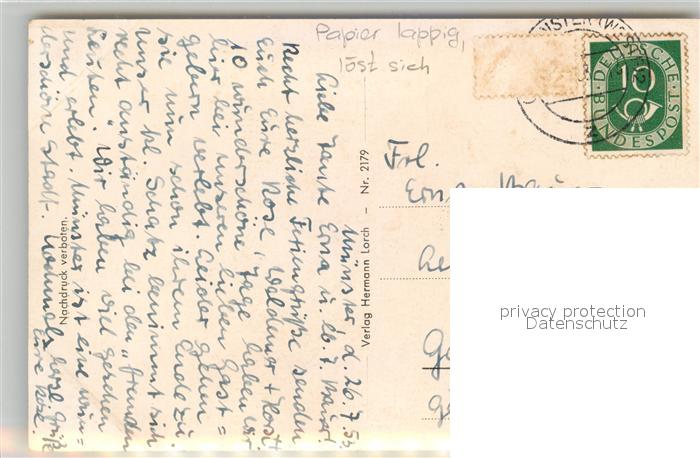 Papier lappig,
löst sich
DEUTSCHE
10
BUNDESPOST
Frl.
Erna
privacy protection
Datenschutz
Verlag Hermann Lorch – Nr. 2179
Nachdruck verboten.
Münster d. 26.7.53
Liebe Tante Erna u. lb. F. Bauer!
Recht herzliche Feriengrüße senden
Euch Eure Rose, Waldemar + Horst
10 wunderschöne Tage haben wir
hier bei unseren lieben Gast=
gebern verlebt. Leider gehen
sie nun schon ihrem Ende zu
unser kl. Schatz benimmt sich
recht anständig bei den "fremden
Leuten". Wir haben viel gesehen
und erlebt. Münster ist eine wun=
derschöne Stadt. Nochmals herzl. Grüße
Eure Rose.